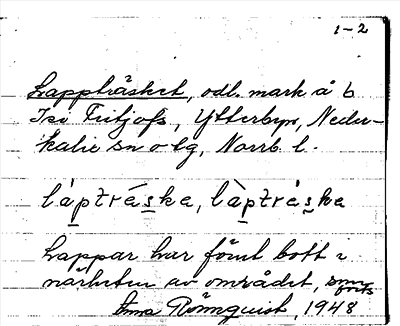 1-2
Lappträsket, odl. mark å b
Isi Fritjofs, Ytterbyn, Neder-
kalix sn o tg, Norrb. l.
láptráska, làptráska
Lappar har förut bott i
närheten av området, som
Rönnquist, 1948